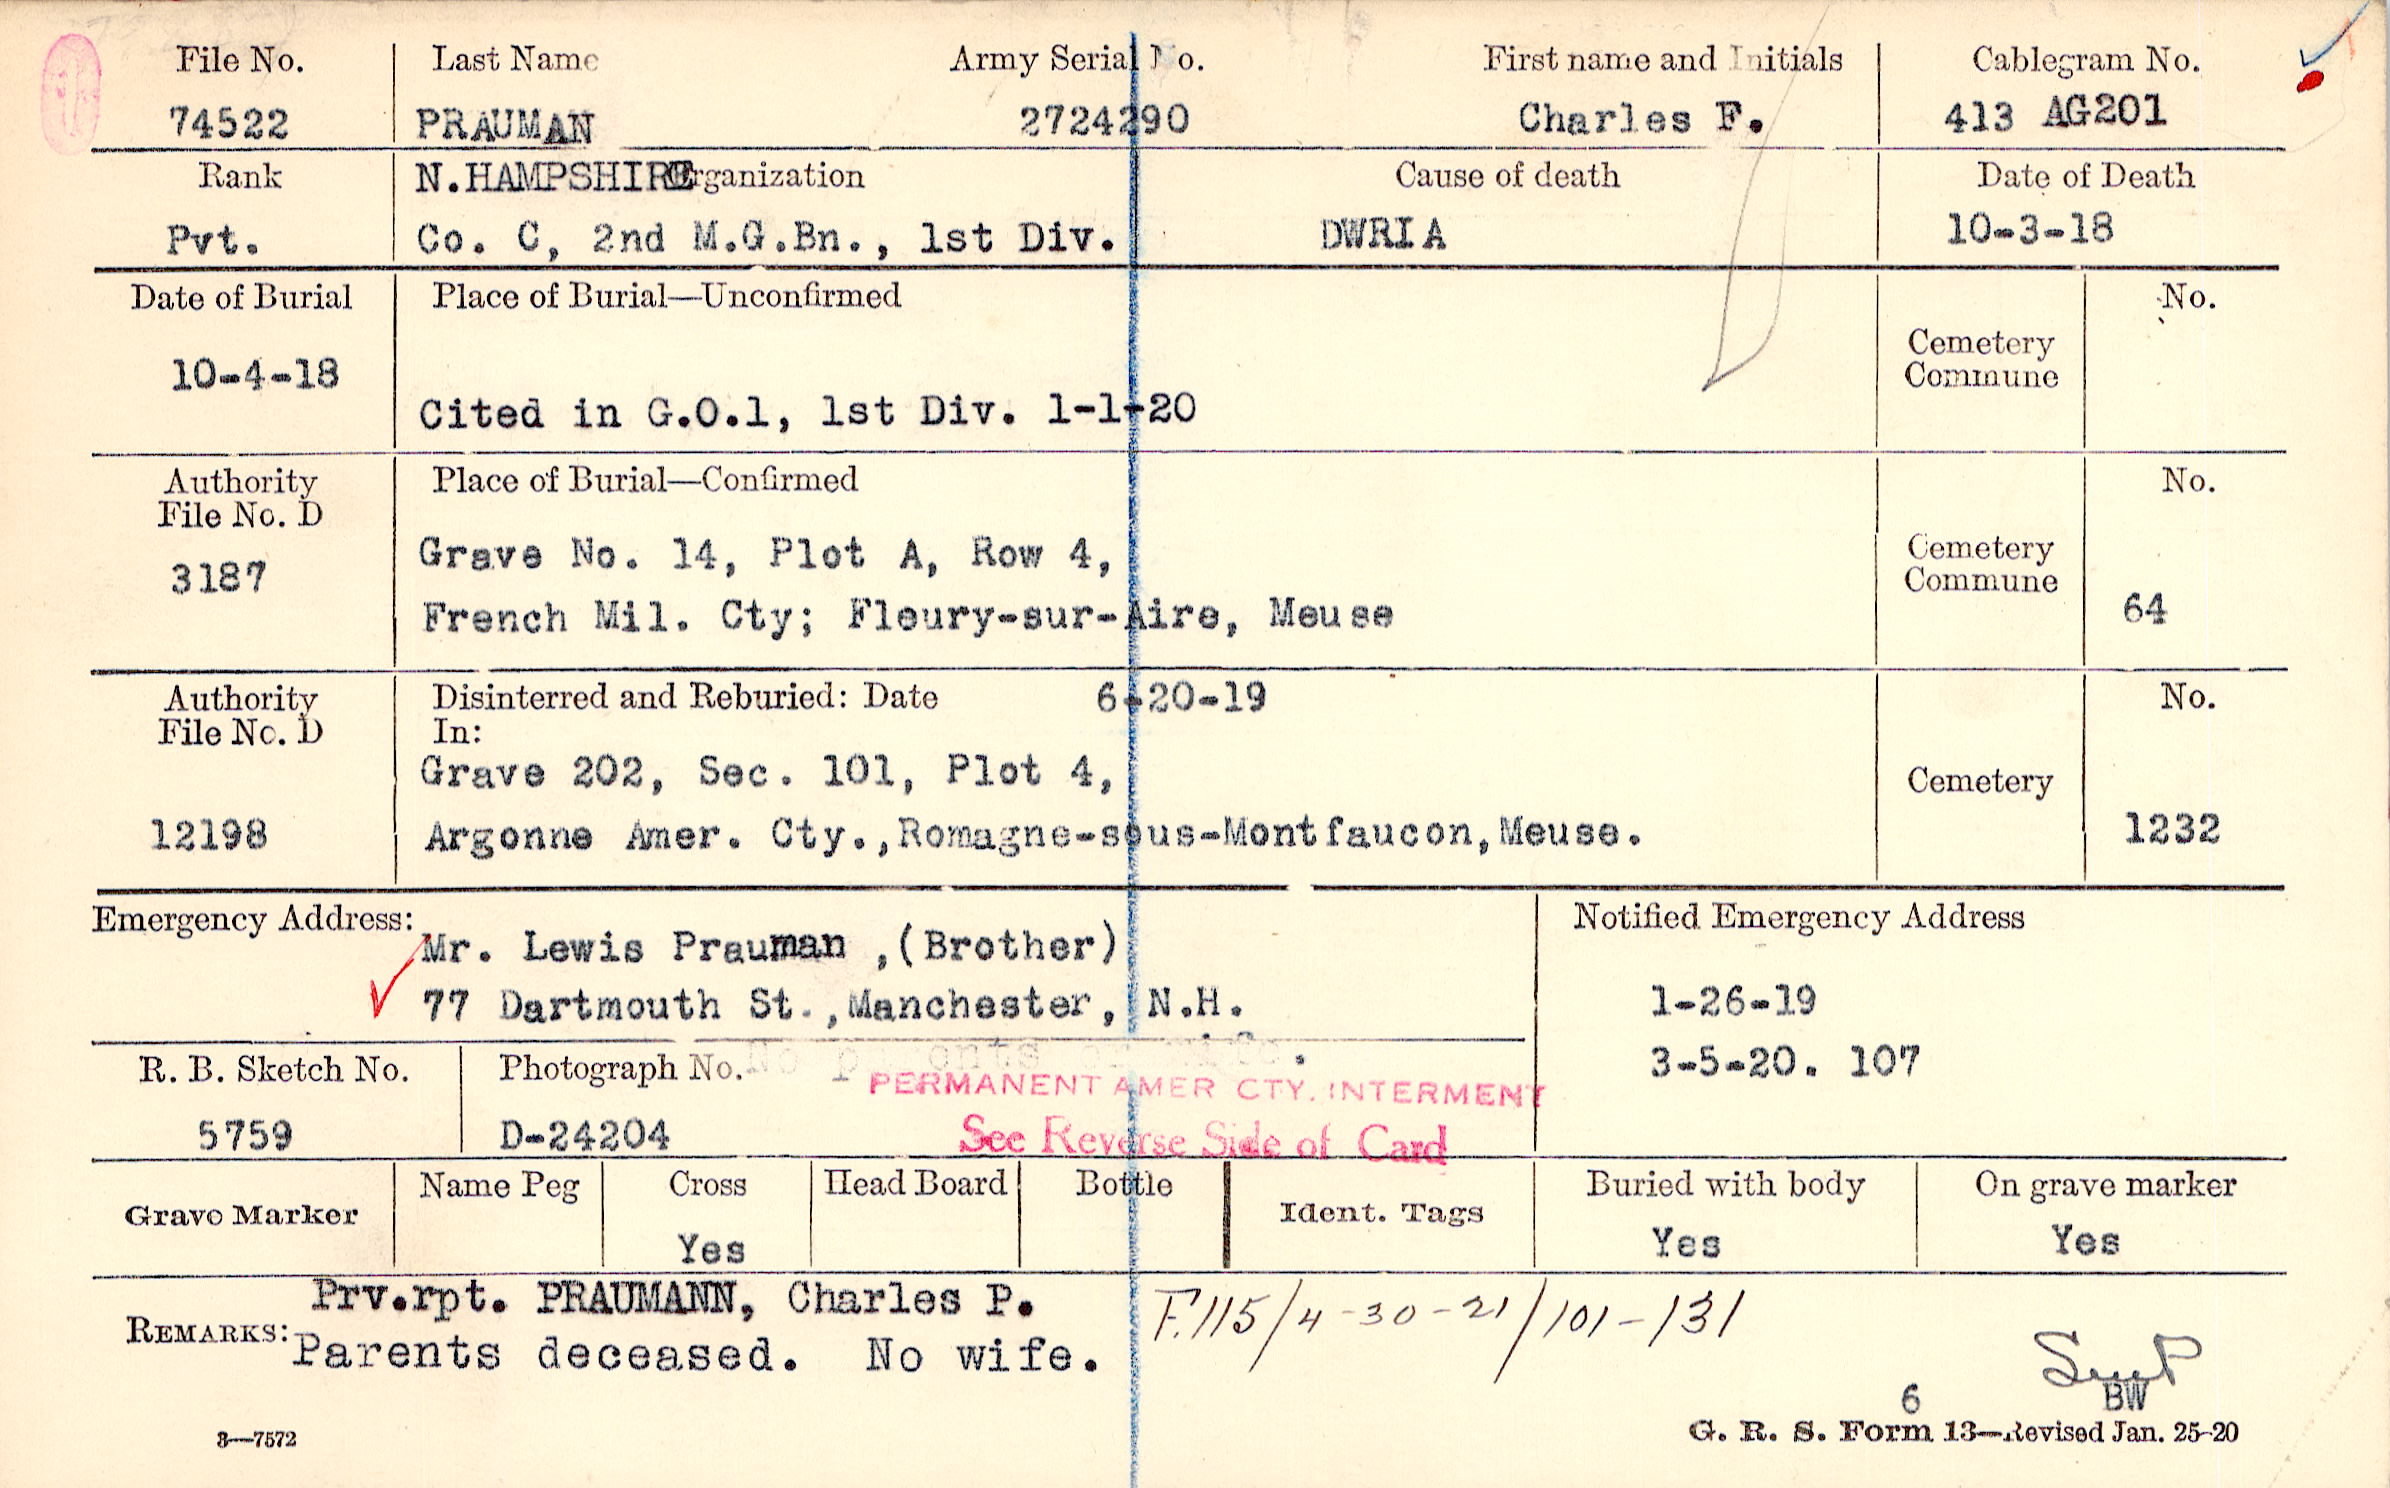 File No. Last Name Army Serial No. First name and Initials Cablegram No.
74522 PRAUMAN 2724290 Charles F. 413 AG201
Rank N.HAMPSHIRE Organization Cause of death Date of Death
Pvt. Co. C, 2nd M.G.Bn., 1st Div. DWRIA 10-3-18
Date of Burial Place of Burial—Unconfirmed No.
Cemetery
Commune
10-4-18
Cited in G.O.1, 1st Div. 1-1-20
Authority Place of Burial—Confirmed No.
File No. D
3187
Grave No. 14, Plot A, Row 4,
French Mil. Cty; Fleury-sur-Aire, Meuse
Cemetery
Commune
64
Authority Disinterred and Reburied: Date 6-20-19 No.
File No. D In:
Grave 202, Sec. 101, Plot 4,
Cemetery
12198 Argonne Amer. Cty.,Romagne-sous-Montfaucon,Meuse. 1232
Emergency Address: Notified Emergency Address
Mr. Lewis Prauman ,(Brother)
77 Dartmouth St.,Manchester, N.H. 1-26-19
3-5-20. 107
R. B. Sketch No. Photograph No. No parents wife.
PERMANENT AMER CTY. INTERMENT
5759 D-24204 See Reverse Side of Card
Grave Marker Name Peg Cross Head Board Bottle Ident. Tags Buried with body On grave marker
Yes Yes Yes
Prv.rpt. PRAUMANN, Charles P. F.115/4-30-21/101-131
REMARKS: Parents deceased. No wife.
6 BW
3—7572 G. R. S. Form 13—Revised Jan. 25-20